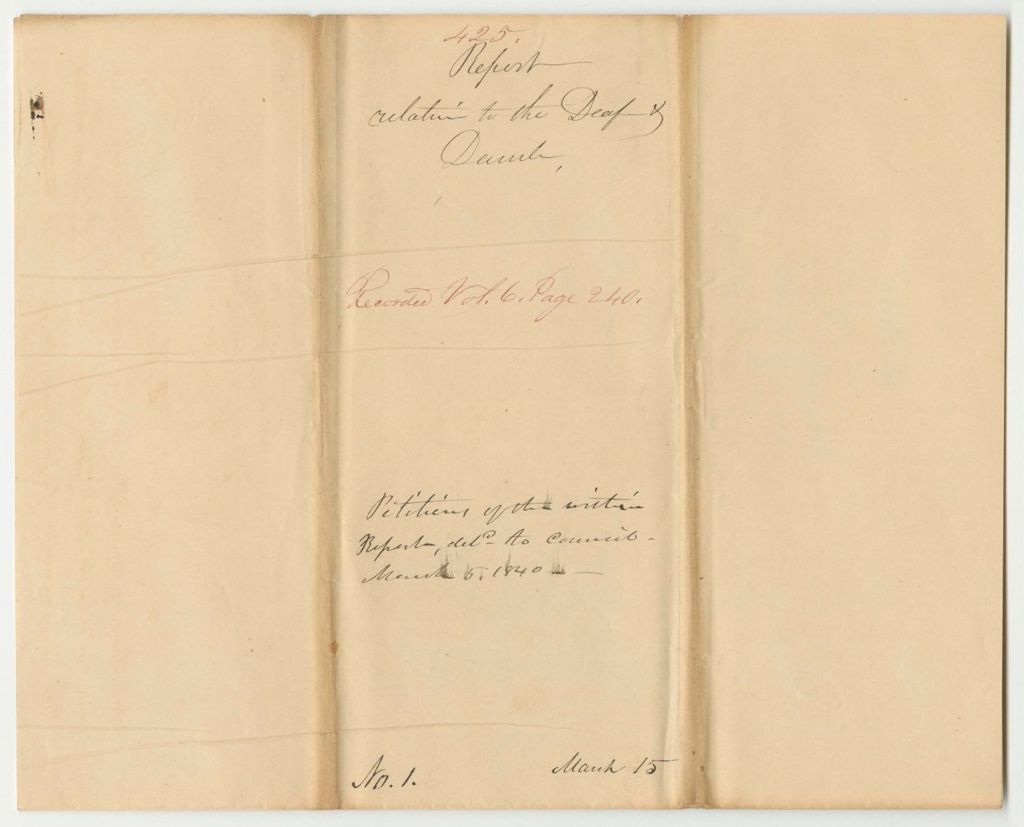 425.
Report
relative to the Deaf &
Dumb,
Recorded Vol. 6. Page 240.
Petitions of the within
Report, deld to Council -
March 5, 1840 —
No. 1.
March 15